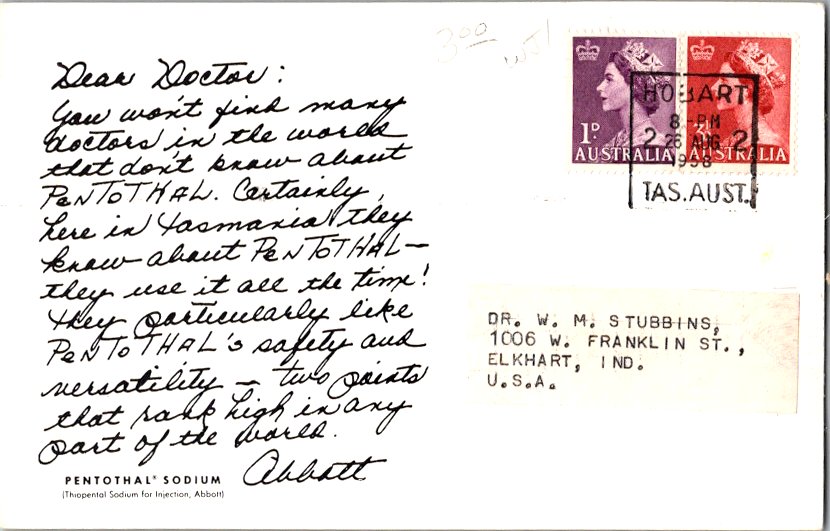 3.00
Dear Doctor:
You won't find many
doctors in the world
that don't know about
PENTOTHAL. Certainly,
here in Tasmania they
know about PENTOTHAL—
they use it all the time!
They particularly like
PENTOTHAL's safety and
versatility — two points
that rank high in any
part of the world.
Abbott
PENTOTHAL® SODIUM
(Thiopental Sodium for Injection, Abbott)
1D
AUSTRALIA
AUSTRALIA
HOBART
8-PM
2 26 AUG 2
1958
TAS. AUST.
DR. W. M. STUBBINS,
1006 W. FRANKLIN ST.,
ELKHART, IND.
U.S.A.